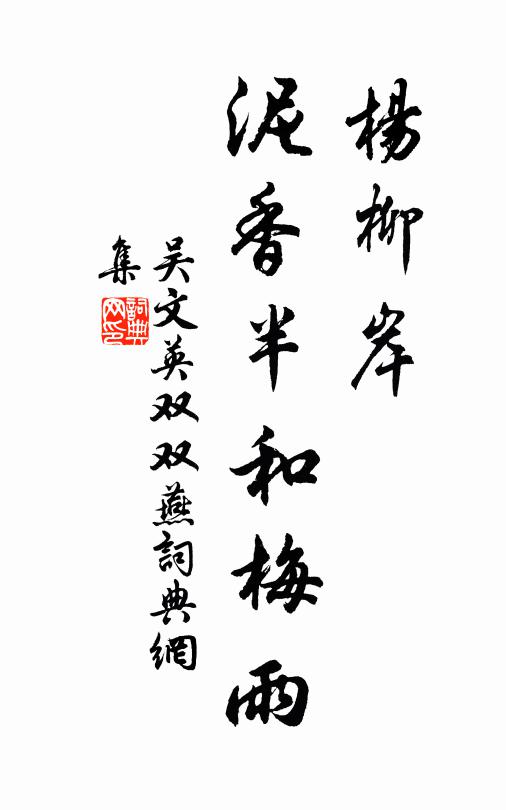 楊柳岸
泥香半和梅雨
吴文英双双燕詞典網
集
詞典
网印